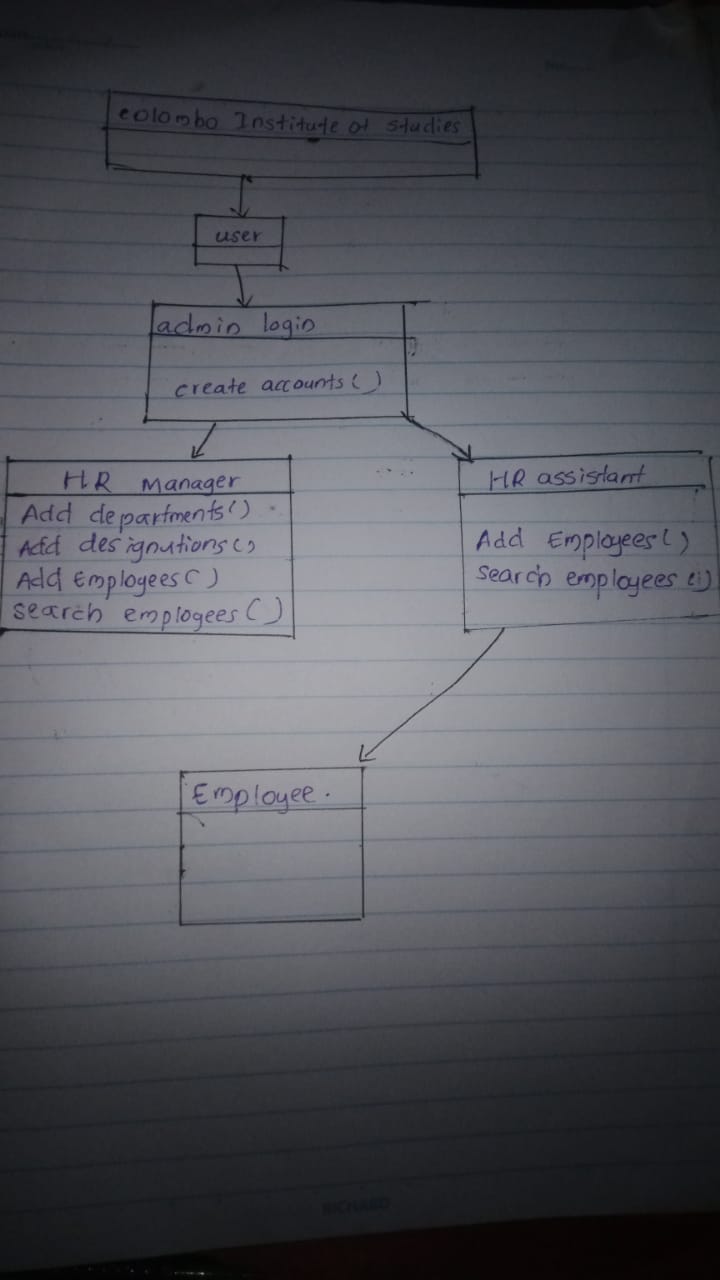 colombo Institute of studies
user
admin login
create accounts()
HR Manager
Add departments()
Add designutions()
Add Employees()
search employees()
HR assistant
Add Employees()
search employees()
Employee.
RICHARD